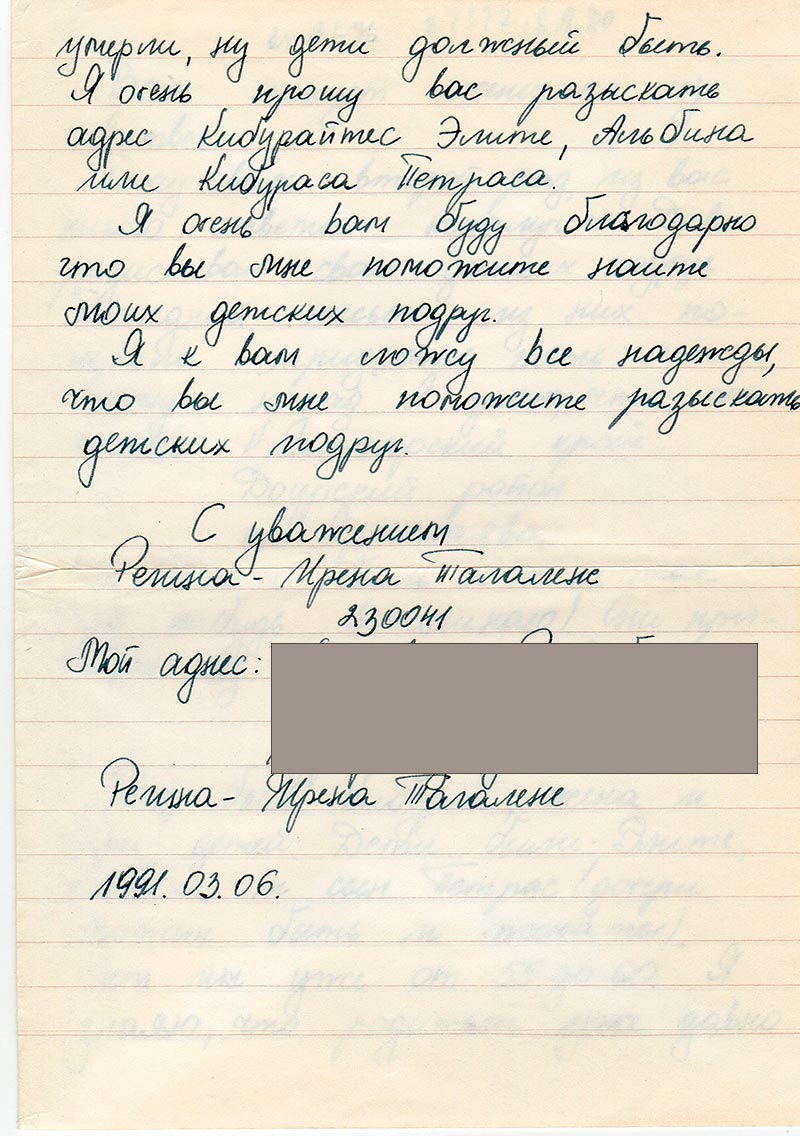 умерли, ну дети должный быть.
Я очень прошу вас разыскать
адрес Кибурайтес Элите, Альбина
или Кибураса Петраса.
Я очень вам буду благодарно
что вы мне поможите наите
моих детских подруг.
Я к вам ложу все надежды,
что вы мне поможите разыскать
детских подруг.
С уважением
Регина-Ирена Тагалене
230041
Мой аднес:
Регина-Ирена Тагалене
1991.03.06.